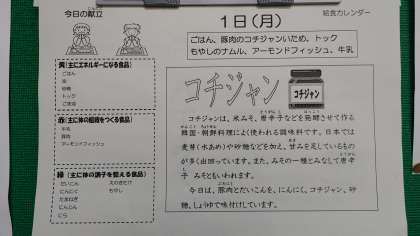 今日の献立
給食カレンダー
1日(月)
ごはん、豚肉のコチジャンいため、トック
もやしのナムル、アーモンドフィッシュ、牛乳
黄(主にエネルギーになる食品)
ごはん
油
砂糖
トック
ごま油
赤(主に体の組織をつくる食品)
牛乳
豚肉
アーモンドフィッシュ
緑(主に体の調子を整える食品)
だいこん えのきたけ
にんにく もやし
たまねぎ
にんじん
にら
コチジャン
コチジャン
コチジャンは、米みそ、唐辛子などを発酵させて作る
韓国・朝鮮料理によく使われる調味料です。日本では
麦芽(水あめ)や砂糖などを加え、甘みを足しているもの
が多く出回っています。また、みその一種とみなして唐辛
子みそともいわれます。
今日は、豚肉とだいこんを、にんにく、コチジャン、砂
糖、しょうゆで味付けしています。